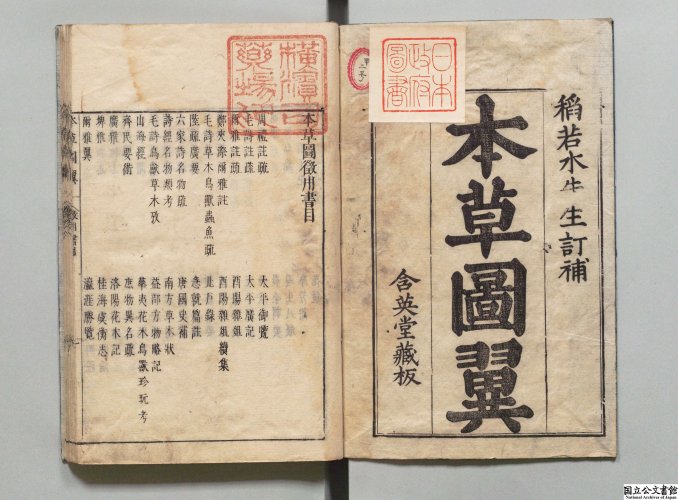 稻若水先生訂補
本草圖翼
含英堂藏板
日本
政府
圖書
本草圖徵用書目
周禮註疏
太平御覧
毛詩註疏
太平廣記
爾雅註疏
酉陽雜俎
鄭夾漈爾雅註
酉陽雜俎續集
毛詩草木鳥獸蟲魚疏
北戶錄
陸疏廣要
急就篇註
六家詩名物疏
唐國史補
詩經名物類考
南方草木狀
毛詩鳥獸草木攷
益部方物略記
山海經
華夷花木鳥獸珍玩考
齊民要術
庶物異名疏
廣雅
洛陽花木記
埤雅
桂海虞衡志
爾雅翼
瀛涯勝覧
本草圖翼
国立公文書館
National Archives of Japan